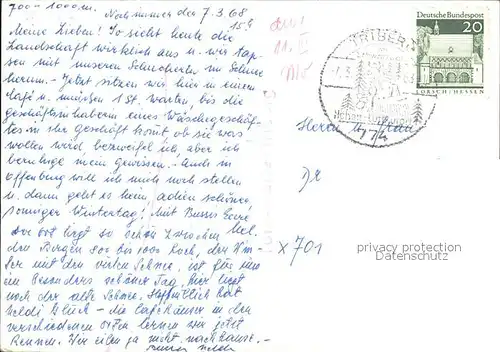 700-1000 m.
Nachmittag 7.3.68
Meine Lieben! So sieht heute die
Landschaft wirklich aus u. wir tap-
sen mit unseren Schuhen im Schnee
herum. - Jetzt sitzen wir hier in einem
Café u. müssen 1 St. warten, bis die
Geschäftsinhaberin eines Wäschegeschäf-
tes in ihr Geschäft kommt ob sie was
wollen wird bezweifel ich, aber ich
beruhige mein Gewissen! - Auch in
Offenburg will ich mich noch stellen
u. dann geht es heim, adieu schöner,
sonniger Wintertag! Mit Bussi Eure
Der Ort liegt so schön zwischen Mel.
den Bergen 800 bis 1000 hoch, der Win-
ter mit dem vielen Schnee, ist für uns
ein besonders schöner Tag, hier liegt
noch der alte Schnee. Hoffentlich hat
Heldi Glück - die Cafehäuser in den
verschiedenen Orten lernen wir jetzt
kennen. Wir eilen ja nicht nach Hause. -
Deutsche Bundespost
20
LORSCH/HESSEN
TRIBERG
774
Herrn u. Frau
Dr
x 701
privacy protection
Datenschutz